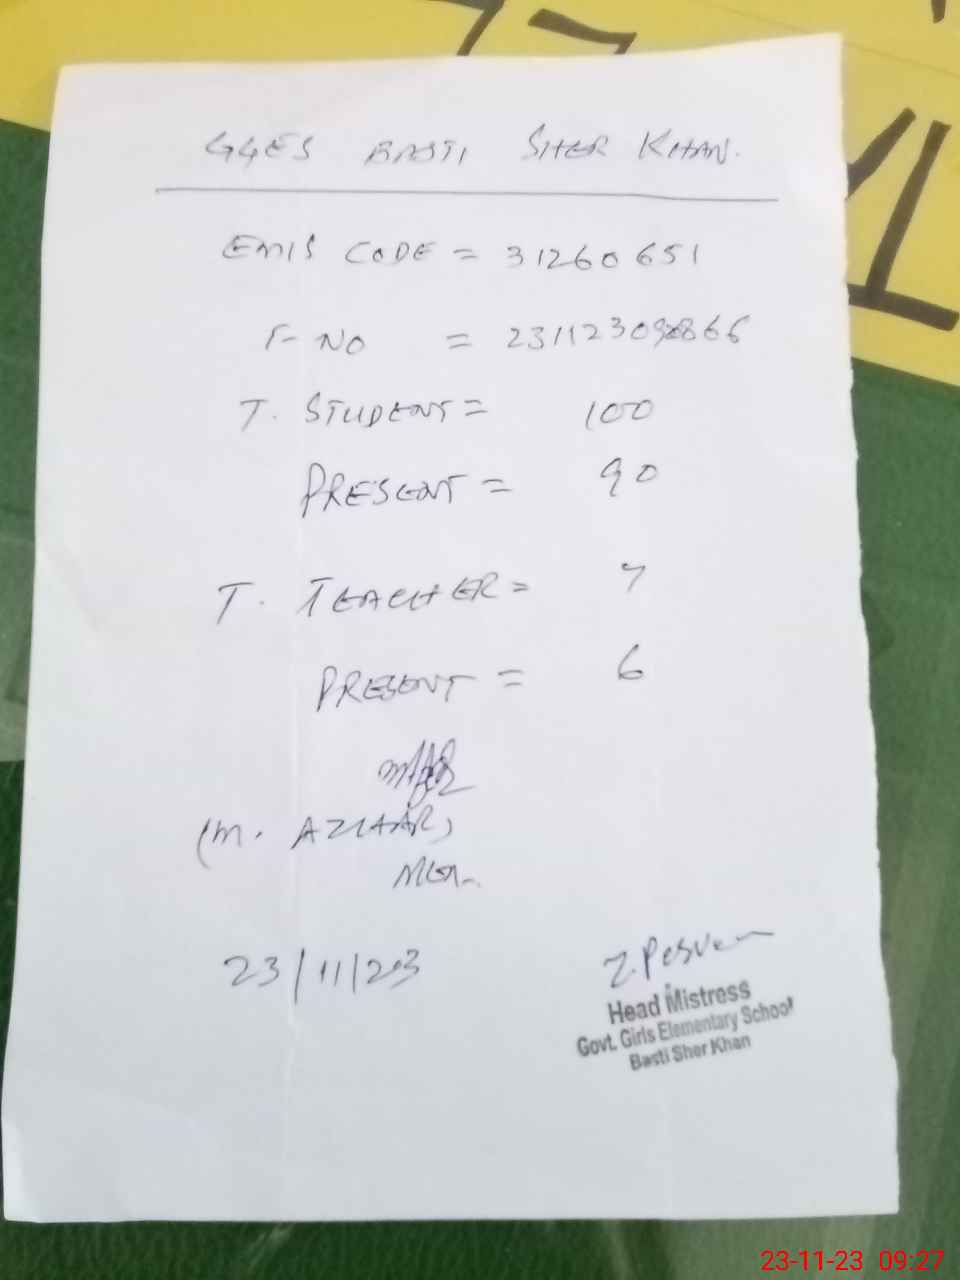 GGES BASTI SHER KHAN.
EMIS CODE = 31260651
F-NO =
T. STUDENT = 100
PRESENT = 90
T. TEACHER = 7
PRESENT = 6
(M. AZHAR)
23/11/23
Head Mistress
Govt. Girls Elementary School
Basti Sher Khan
23-11-23 09:27